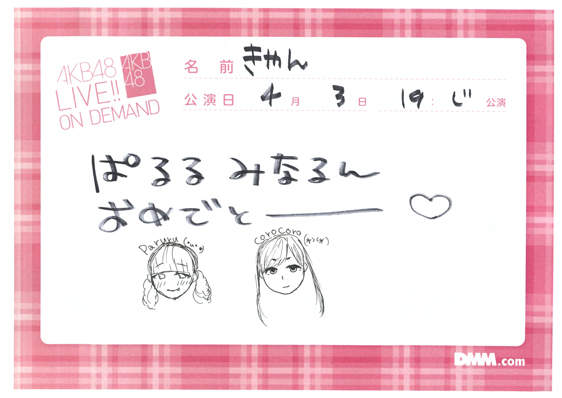 AKB48
LIVE!!
ON DEMAND
AKB
48
名前 きゃん
公演日 4月 3日 19:じ 公演
ぱるる みなるん
おめでとー ♡
Paruru
corocoro
DMM.com